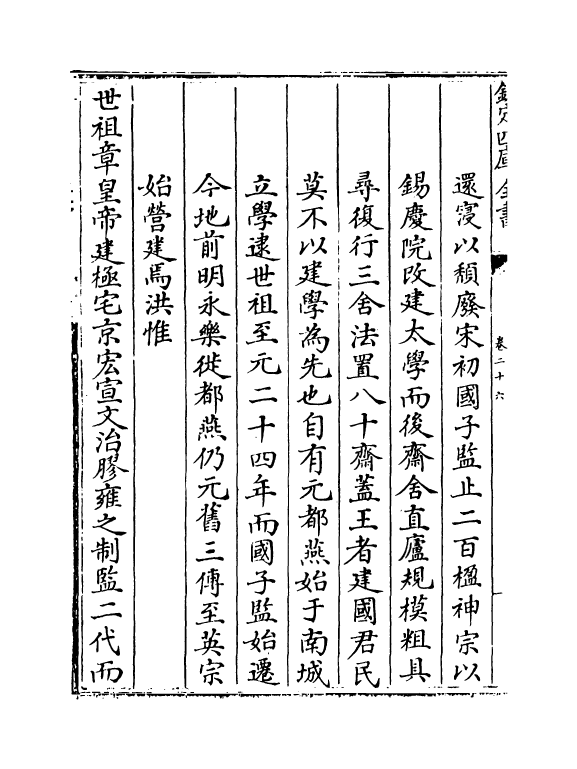 欽定四庫全書
卷二十六
還寖以頹廢宋初國子監止二百楹神宗以
錫慶院改建太學而後齋舍直廬規模粗具
尋復行三舍法置八十齋蓋王者建國君民
莫不以建學為先也自有元都燕始于南城
立學逮世祖至元二十四年而國子監始遷
今地前明永樂徙都燕仍元舊三傳至英宗
始營建焉洪惟
世祖章皇帝建極宅京宏宣文治膠雍之制監二代而